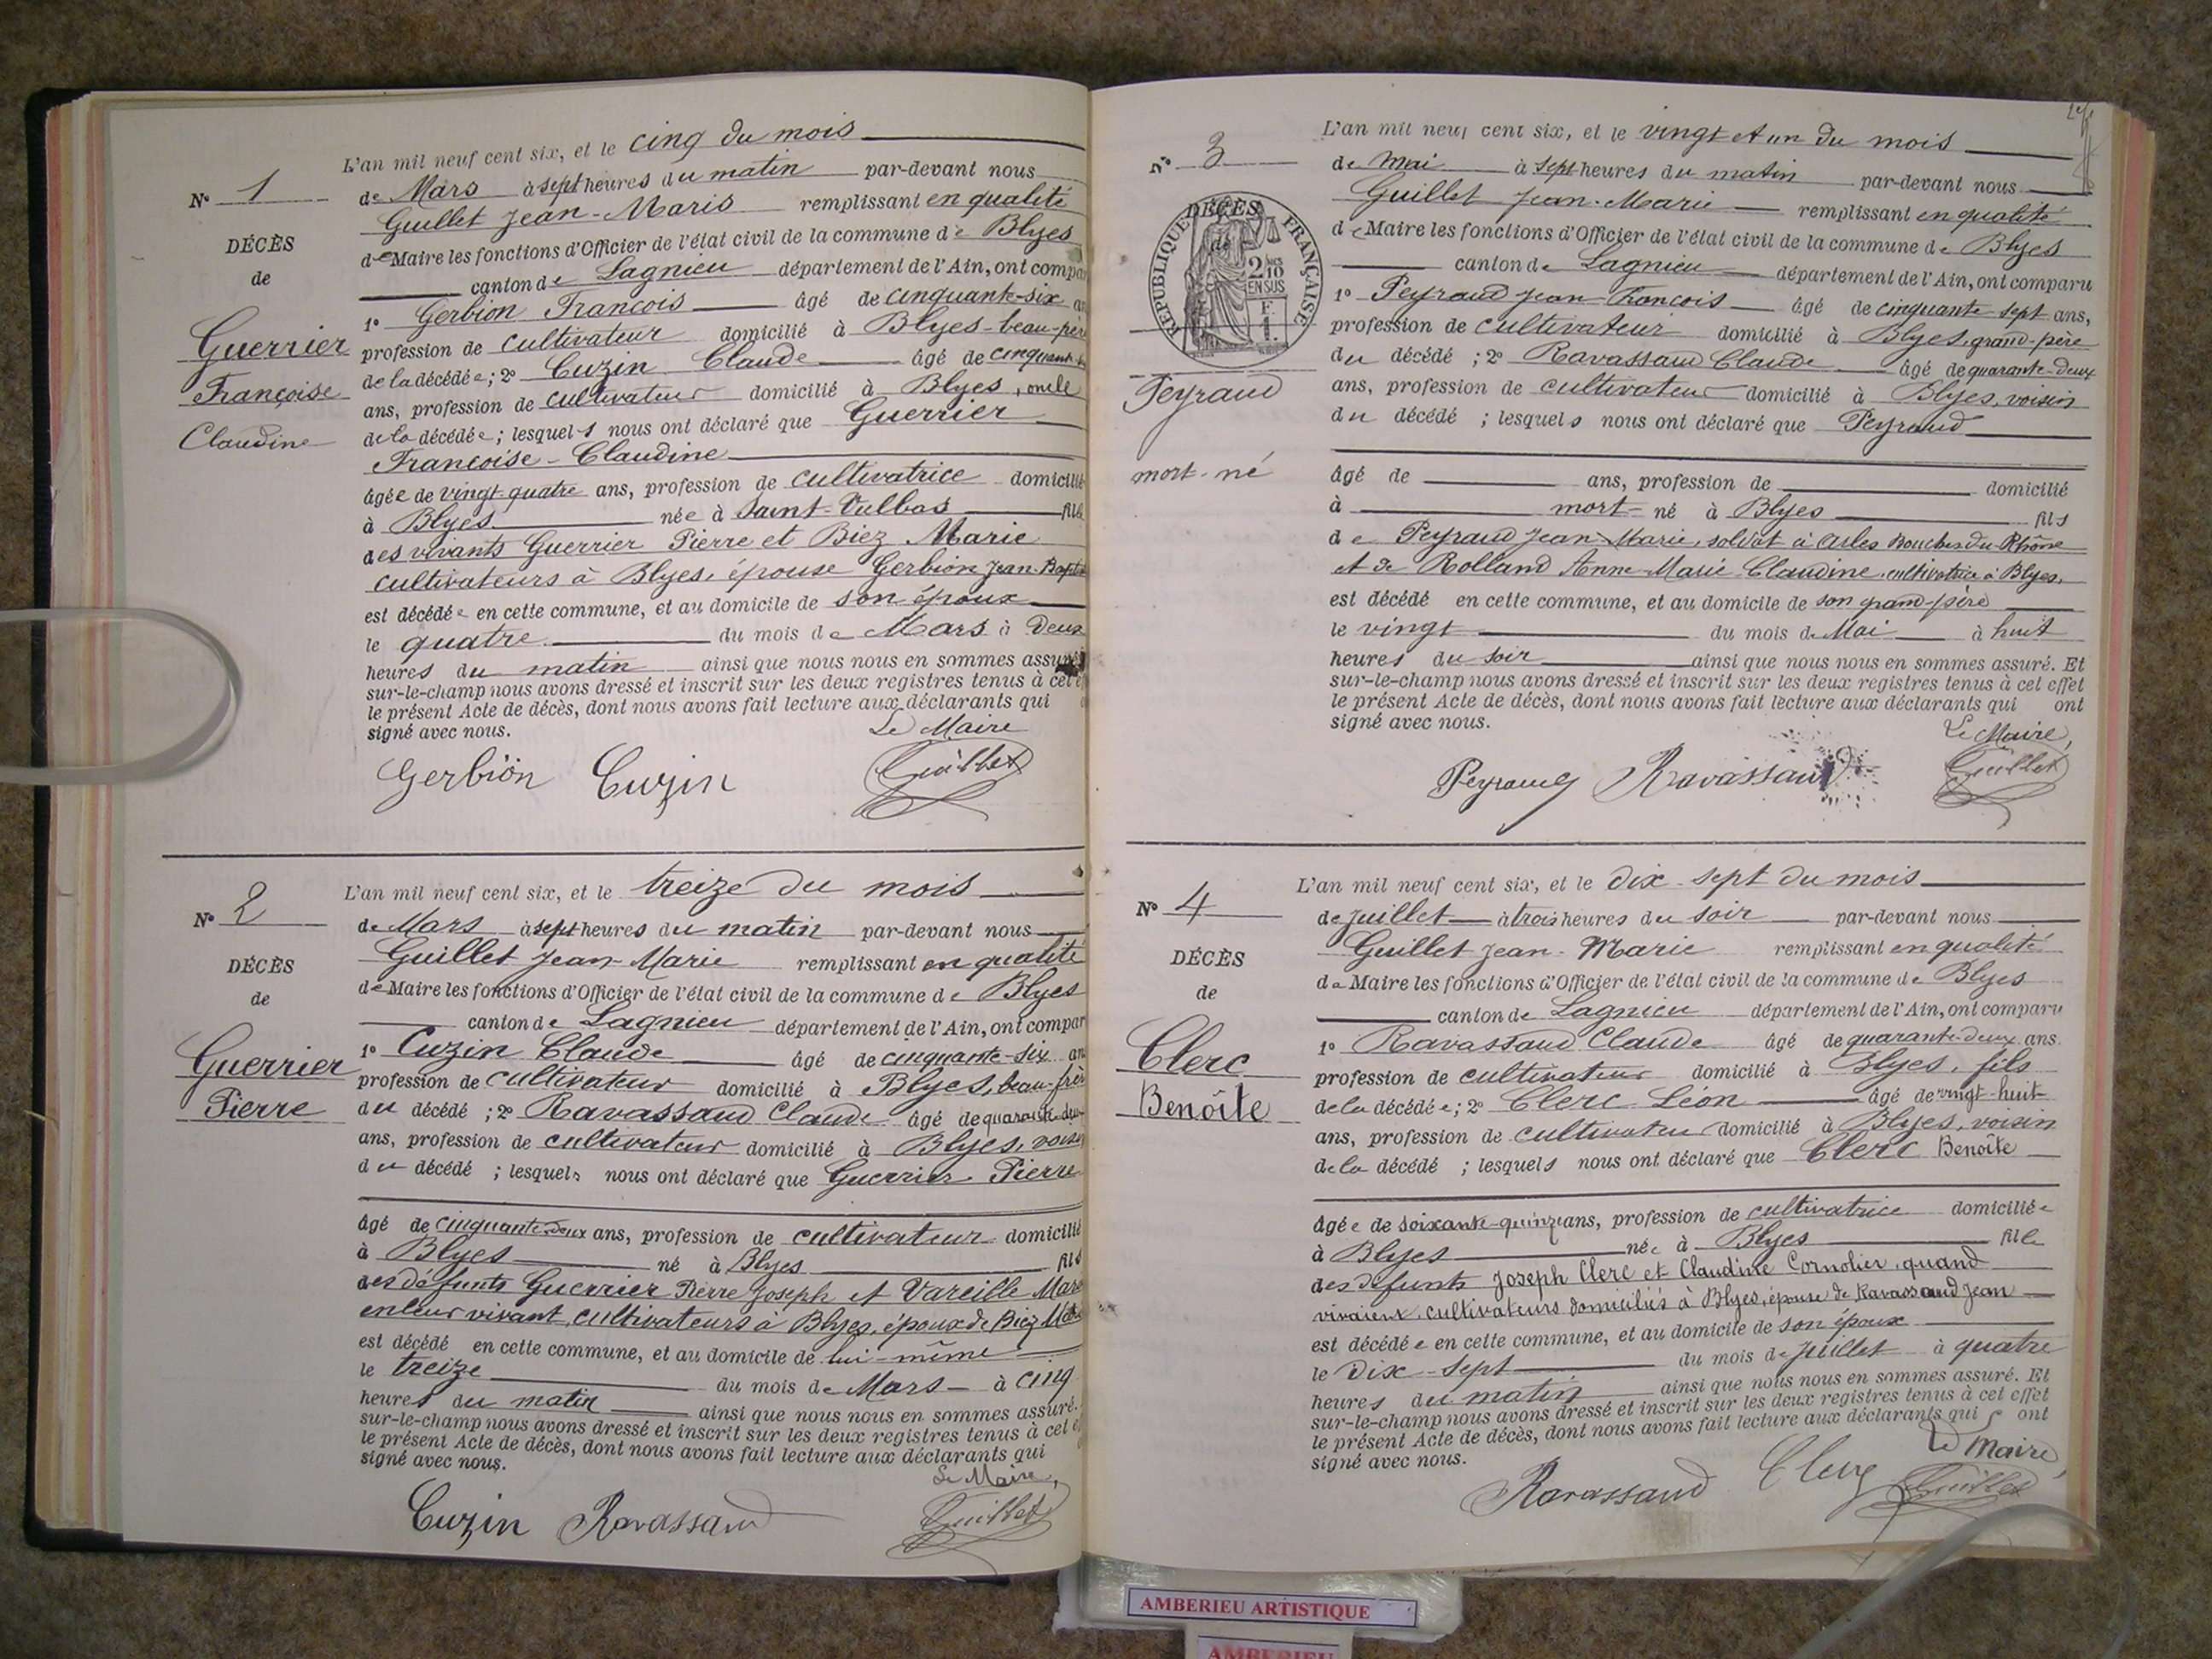 L'an mil neuf cent six, et le cinq du mois
N° 1
de Mars à sept heures du matin par-devant nous
Guillet Jean-Marie remplissant en qualité
DÉCÈS
de Maire les fonctions d'Officier de l'état civil de la commune de Blyes
de
canton de Lagnieu département de l'Ain, ont compa
1° Gerbion François âgé de cinquante-six
Guerrier
profession de cultivateur domicilié à Blyes beau-père
Françoise
de la décédée; 2° Cuzin Claude âgé de
ans, profession de cultivateur domicilié à Blyes, oncle
Claudine
de la décédée; lesquels nous ont déclaré que Guerrier
Françoise-Claudine
âgée de vingt-quatre ans, profession de cultivatrice domicilié
à Blyes née à Saint-Vulbas fille
des vivants Guerrier Pierre et Biez Marie
cultivateurs à Blyes, épouse Gerbion Jean-Baptist
est décédée en cette commune, et au domicile de son époux
le quatre du mois de Mars à Deux
heures du matin ainsi que nous nous en sommes assuré
sur-le-champ nous avons dressé et inscrit sur les deux registres tenus à cet e
le présent Acte de décès, dont nous avons fait lecture aux déclarants qui
signé avec nous.
Le Maire
Gerbiön Cuzin Guillet
L'an mil neuf cent six, et le treize du mois
N° 2
de Mars à sept heures du matin par-devant nous
Guillet Jean-Marie remplissant en qualité
DÉCÈS
de Maire les fonctions d'Officier de l'état civil de la commune de Blyes
de
canton de Lagnieu département de l'Ain, ont compar
1° Cuzin Claude âgé de cinquante-six an
Guerrier
profession de cultivateur domicilié à Blyes, beau-frèr
Pierre
du décédé; 2° Ravassaud Claude âgé de quarante-deu
ans, profession de cultivateur domicilié à Blyes, voisi
du décédé; lesquels nous ont déclaré que Guerrier Pierre
âgé de cinquante-deux ans, profession de cultivateur domicilié
à Blyes né à Blyes fils
des défunts Guerrier Pierre Joseph et Vareille Mar
en leur vivant, cultivateurs à Blyes, époux de Biez
est décédé en cette commune, et au domicile de lui-même
le treize du mois de Mars à cinq
heures du matin ainsi que nous nous en sommes assuré.
sur-le-champ nous avons dressé et inscrit sur les deux registres tenus à cet e
le présent Acte de décès, dont nous avons fait lecture aux déclarants qui
signé avec nous.
Le Maire,
Cuzin Ravassaud Guillet
L'an mil neuf cent six, et le vingt et un du mois
N° 3
de Mai à sept heures du matin par-devant nous
Guillet Jean-Marie remplissant en qualité
DÉCÈS
de
RÉPUBLIQUE FRANÇAISE
2/10 EN SUS
F. 1
de Maire les fonctions d'Officier de l'état civil de la commune de Blyes
canton de Lagnieu département de l'Ain, ont comparu
1° Peyraud Jean-François âgé de cinquante-sept ans,
profession de cultivateur domicilié à Blyes, grand-père
du décédé; 2° Ravassaud Claude âgé de quarante-deux
Peyraud
ans, profession de cultivateur domicilié à Blyes, voisin
du décédé; lesquels nous ont déclaré que Peyraud
mort-né
âgé de ans, profession de domicilié
à mort-né à Blyes fils
de Peyraud Jean-Marie, soldat à Arles Bouches du Rhône
et de Rolland Anne-Marie Claudine, cultivatrice à Blyes,
est décédé en cette commune, et au domicile de son grand-père
le vingt du mois de Mai à huit
heures du soir ainsi que nous nous en sommes assuré. Et
sur-le-champ nous avons dressé et inscrit sur les deux registres tenus à cet effet
le présent Acte de décès, dont nous avons fait lecture aux déclarants qui ont
signé avec nous.
Le Maire,
Peyraud Ravassaud Guillet
L'an mil neuf cent six, et le dix-sept du mois
N° 4
de Juillet à trois heures du soir par-devant nous
Guillet Jean-Marie remplissant en qualité
DÉCÈS
de Maire les fonctions d'Officier de l'état civil de la commune de Blyes
de
canton de Lagnieu département de l'Ain, ont comparu
1° Ravassaud Claude âgé de quarante-deux ans
Clerc
profession de cultivateur domicilié à Blyes, fils
Benoîte
de la décédée; 2° Clerc Léon âgé de vingt-huit
ans, profession de cultivateur domicilié à Blyes, voisin
de la décédé; lesquels nous ont déclaré que Clerc Benoîte
âgée de soixante-quinze ans, profession de cultivatrice domiciliée
à Blyes née à Blyes fille
des défunts Joseph Clerc et Claudine Cornolier, quand
vivaient, cultivateurs domiciliés à Blyes, épouse de Ravassaud Jean
est décédée en cette commune, et au domicile de son époux
le dix-sept du mois de Juillet à quatre
heures du matin ainsi que nous nous en sommes assuré. Et
sur-le-champ nous avons dressé et inscrit sur les deux registres tenus à cet effet
le présent Acte de décès, dont nous avons fait lecture aux déclarants qui ont
signé avec nous.
Le Maire,
Ravassaud Clerc Guillet
AMBERIEU ARTISTIQUE
AMBERIEU